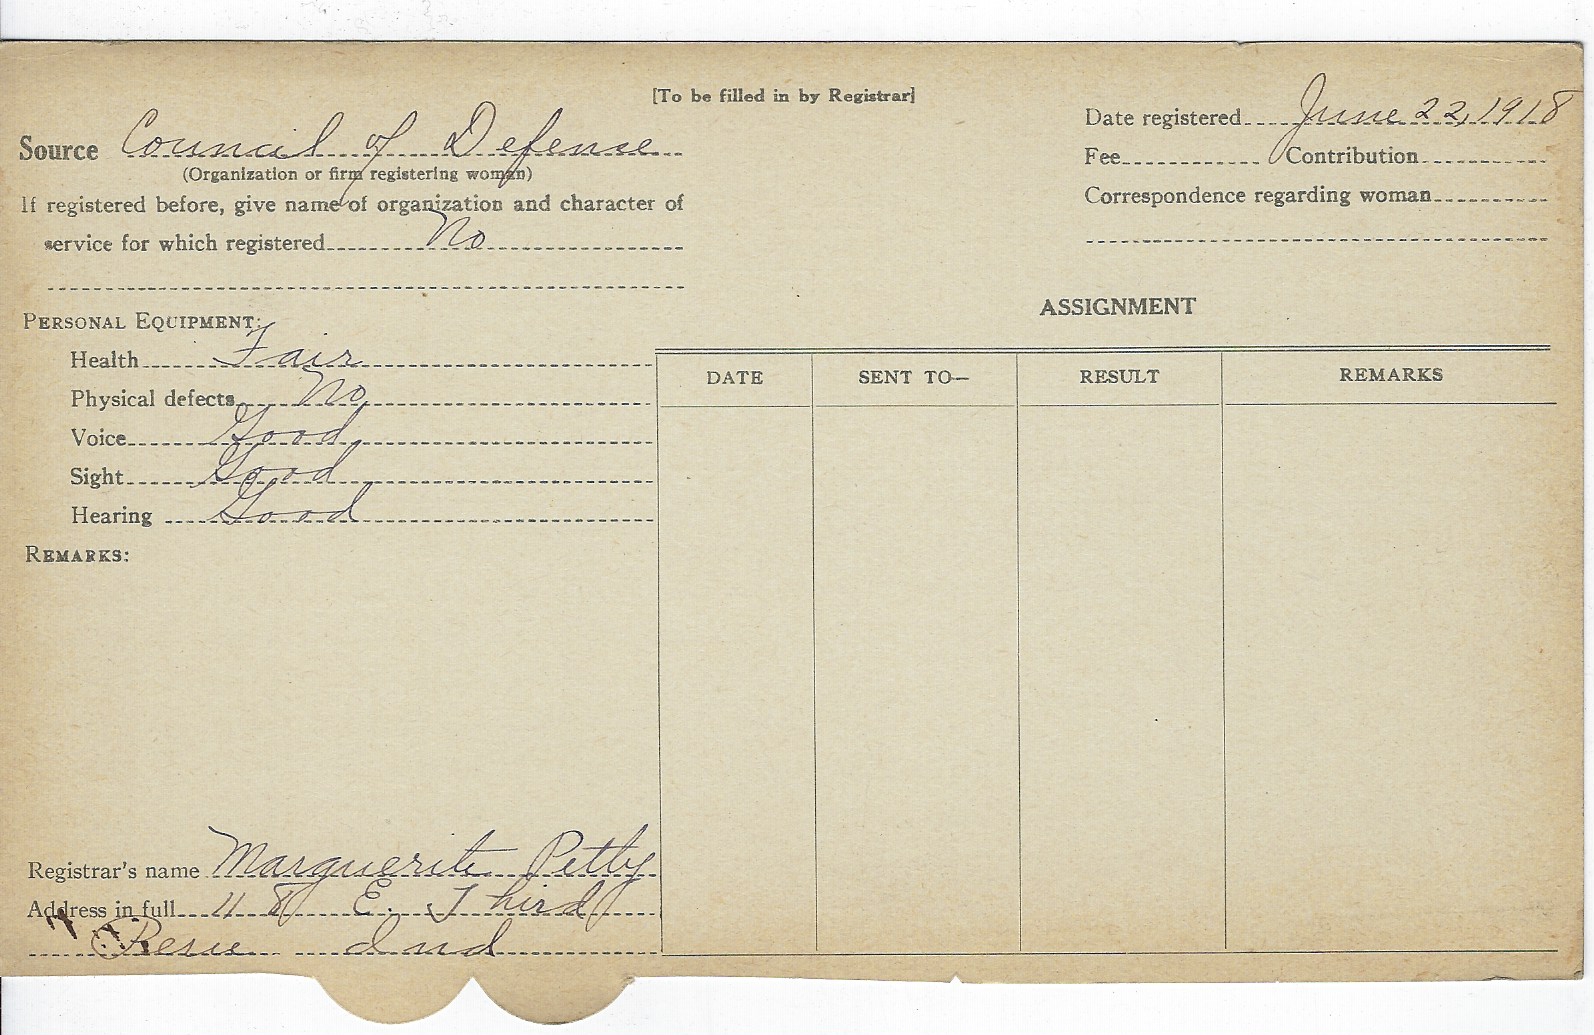 [To be filled in by Registrar]
Source Council of Defense
(Organization or firm registering woman)
If registered before, give name of organization and character of
service for which registered No
Date registered June 22, 1918
Fee Contribution
Correspondence regarding woman
PERSONAL EQUIPMENT:
Health Fair
Physical defects No
Voice Good
Sight Good
Hearing Good
REMARKS:
ASSIGNMENT
DATE SENT TO— RESULT REMARKS
Registrar's name Marguerite Petty
Address in full 118 E. Third
Ind